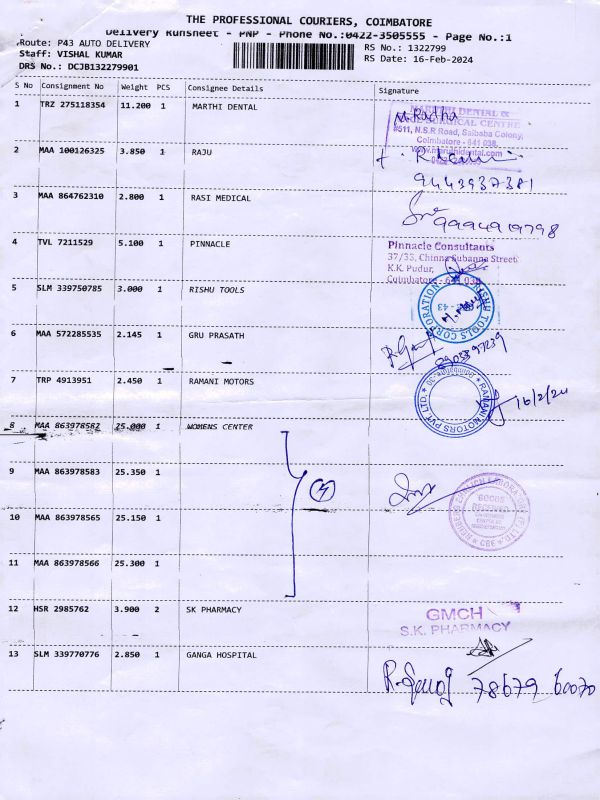 THE PROFESSIONAL COURIERS, COIMBATORE
Delivery Runsheet - PNP - Phone No.:0422-3505555 - Page No.:1
Route: P43 AUTO DELIVERY
RS No.: 1322799
Staff: VISHAL KUMAR
RS Date: 16-Feb-2024
DRS No.: DCJB132279901
S No Consignment No Weight PCS Consignee Details Signature
1 TRZ 275118354 11.200 1 MARTHI DENTAL
M Radha
MARTHI DENTAL &
#511, N.S.R Road, Saibaba Colony,
Coimbatore - 641 038.
2 MAA 100126325 3.850 1 RAJU
9443937381
3 MAA 864762310 2.800 1 RASI MEDICAL
9994919798
4 TVL 7211529 5.100 1 PINNACLE
Pinnacle Consultants
37/33, Chinna Subanna Street
K.K. Pudur,
Coimbatore - 641 038
5 SLM 339750785 3.000 1 RISHU TOOLS
RISHU TOOLS CORPORATION
6 MAA 572285535 2.145 1 GRU PRASATH
8903397239
7 TRP 4913951 2.450 1 RAMANI MOTORS
RAMANI MOTORS PVT. LTD.
16/2/24
8 MAA 863978582 25.000 1 WOMENS CENTER
9 MAA 863978583 25.350 1
4
GOODS
RECEIVED
CBE
10 MAA 863978565 25.150 1
11 MAA 863978566 25.300 1
12 HSR 2985762 3.900 2 SK PHARMACY
GMCH
S.K. PHARMACY
13 SLM 339770776 2.850 1 GANGA HOSPITAL
78679 60070